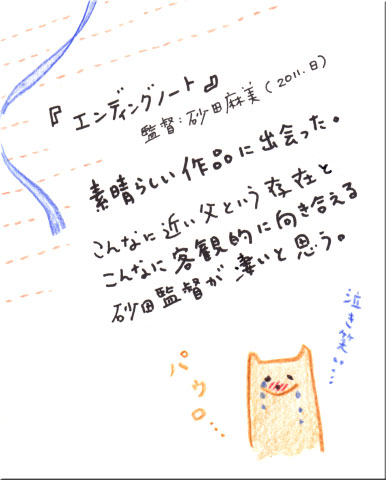 『エンディングノート』
監督:砂田麻美(2011.日)
素晴らしい作品に出会った。
こんなに近い父という存在と
こんなに客観的に向き合える
砂田監督が凄いと思う。
泣き笑い…
パウロ…